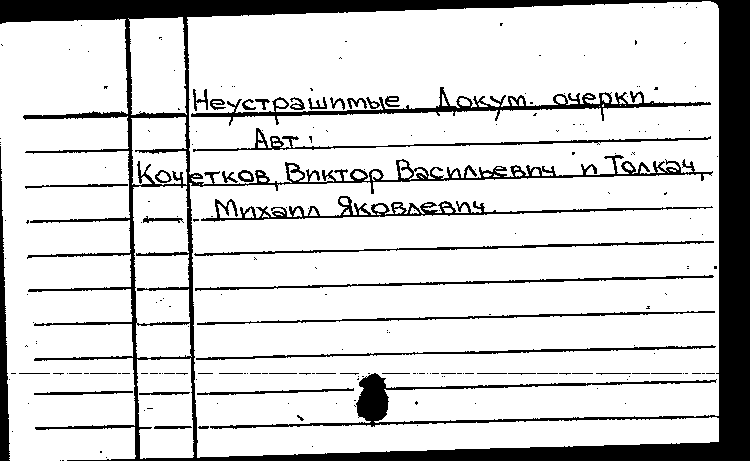 Неустрашимые. Докум. очерки.
Авт:
Кочетков, Виктор Васильевич и Толкач,
Михаил Яковлевич.